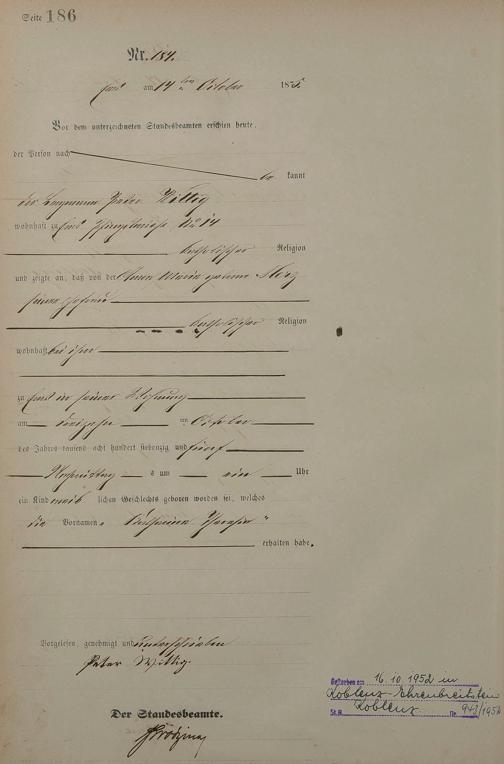 Seite 186
Nr. 184.
Ems am 14ten October 1875
Vor dem unterzeichneten Standesbeamten erschien heute,
der Person nach
be kannt
der Peter Wittig
wohnhaft zu Ems No 14
katholischer Religion
und zeigte an, daß von der Anna Maria geborne
seiner Ehefrau
katholischer Religion
wohnhaft bei ihm
zu Ems in seiner Wohnung
am dreizehn ten October
des Jahres tausend acht hundert siebenzig und fünf
Nachmittag s um ein Uhr
ein Kind weib lichen Geschlechts geboren worden sei, welches
die Vornamen „Katharina
erhalten habe.
Vorgelesen, genehmigt und unterschrieben
Peter Wittig.
Der Standesbeamte.
Gestorben am 16.10.1952 in
Koblenz-Ehrenbreitstein
St.A. Koblenz Nr. 943/1952